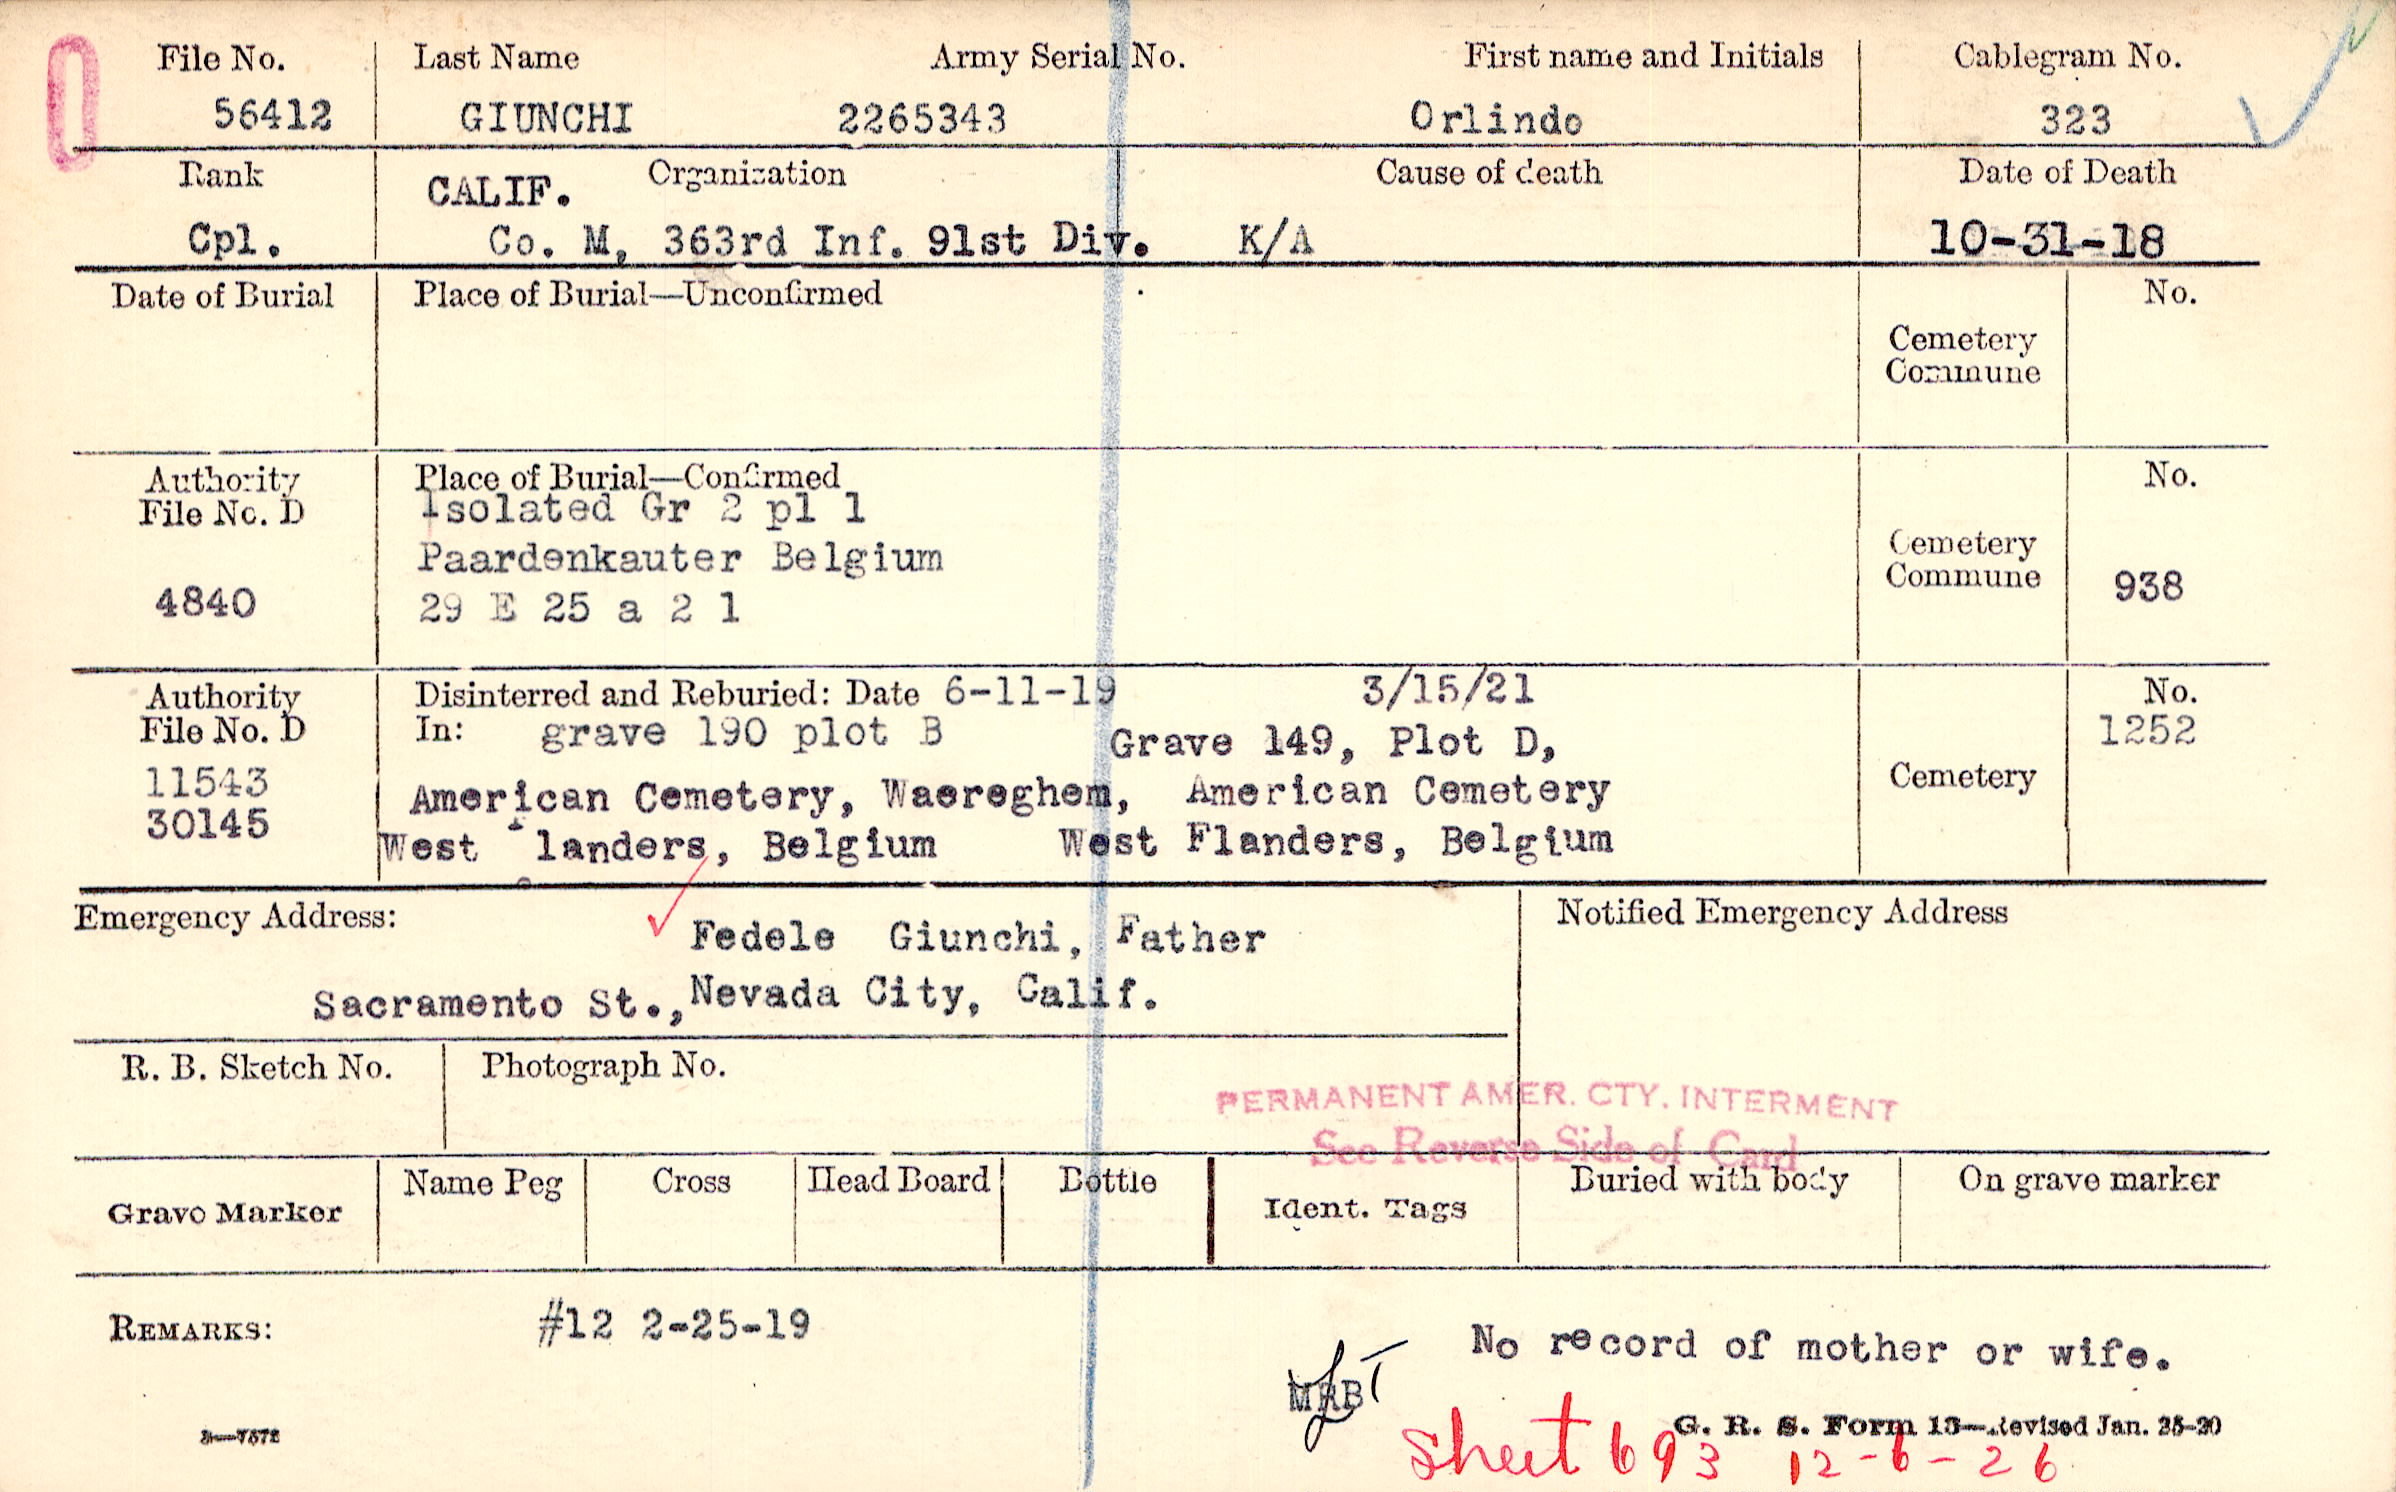 File No. Last Name Army Serial No. First name and Initials Cablegram No.
56412 GIUNCHI 2265343 Orlindo 323
Rank CALIF. Organization Cause of death Date of Death
Cpl. Co. M, 363rd Inf. 91st Div. K/A 10-31-18
Date of Burial Place of Burial—Unconfirmed No.
Cemetery
Commune
Authority Place of Burial—Confirmed No.
File No. D Isolated Gr 2 pl 1
Paardenkauter Belgium Cemetery
4840 29 E 25 a 2 1 Commune 938
Authority Disinterred and Reburied: Date 6-11-19 3/15/21 No.
File No. D In: grave 190 plot B Grave 149, Plot D, 1252
11543 American Cemetery, Waereghem, American Cemetery Cemetery
30145 West Flanders, Belgium West Flanders, Belgium
Emergency Address: Fedele Giunchi, Father Notified Emergency Address
Sacramento St., Nevada City, Calif.
R. B. Sketch No. Photograph No.
PERMANENT AMER. CTY. INTERMENT
See Reverse Side of Card
Grave Marker Name Peg Cross Head Board Bottle Ident. Tags Buried with body On grave marker
REMARKS: #12 2-25-19 No record of mother or wife.
MRB
3—7572 G. R. S. Form 13—Revised Jan. 25-20
Sheet 693 12-6-26